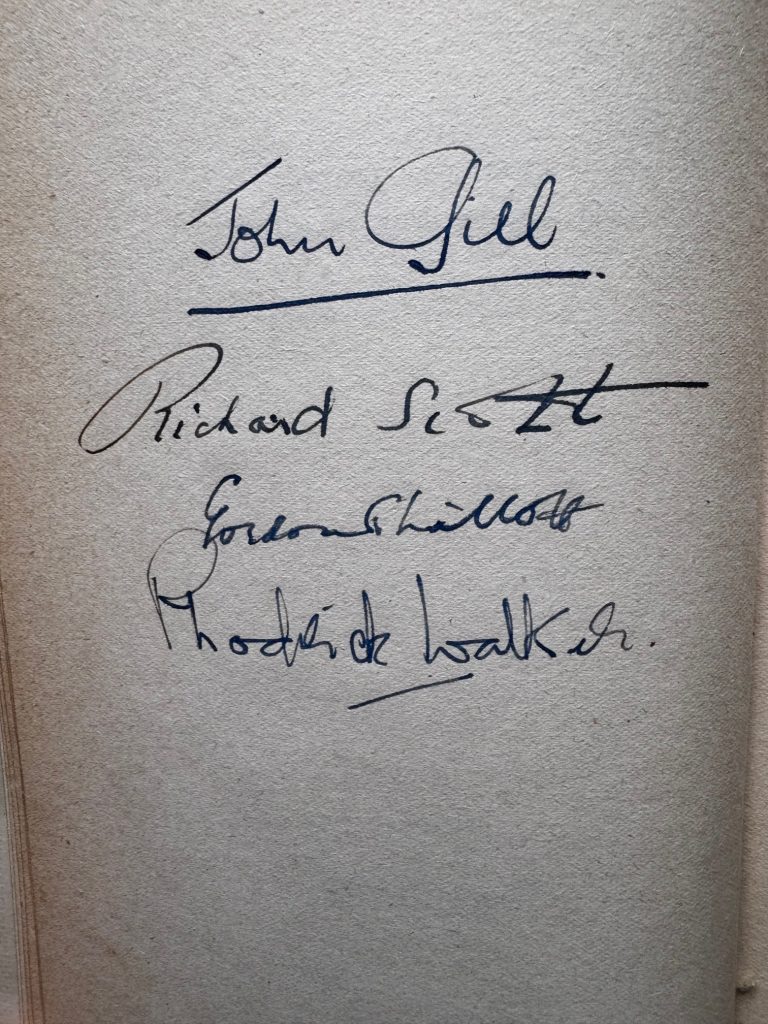 John Gill.
Richard Scott
Gordon
Rhodrick Walker.